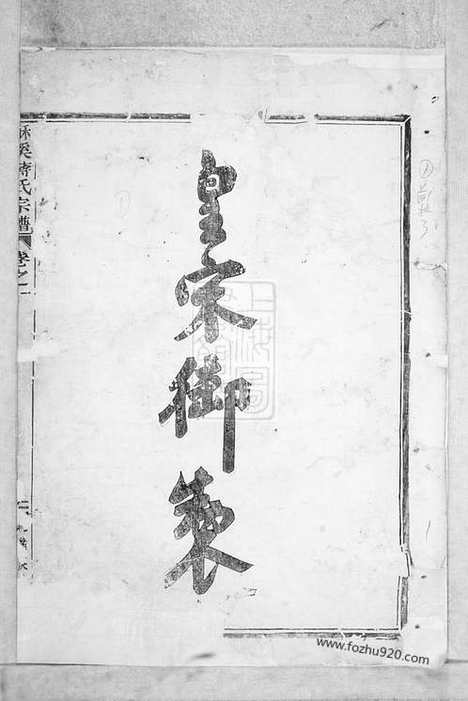 皇宋御製
蘇溪蔣氏宗譜 卷之一
www.fozhu920.com